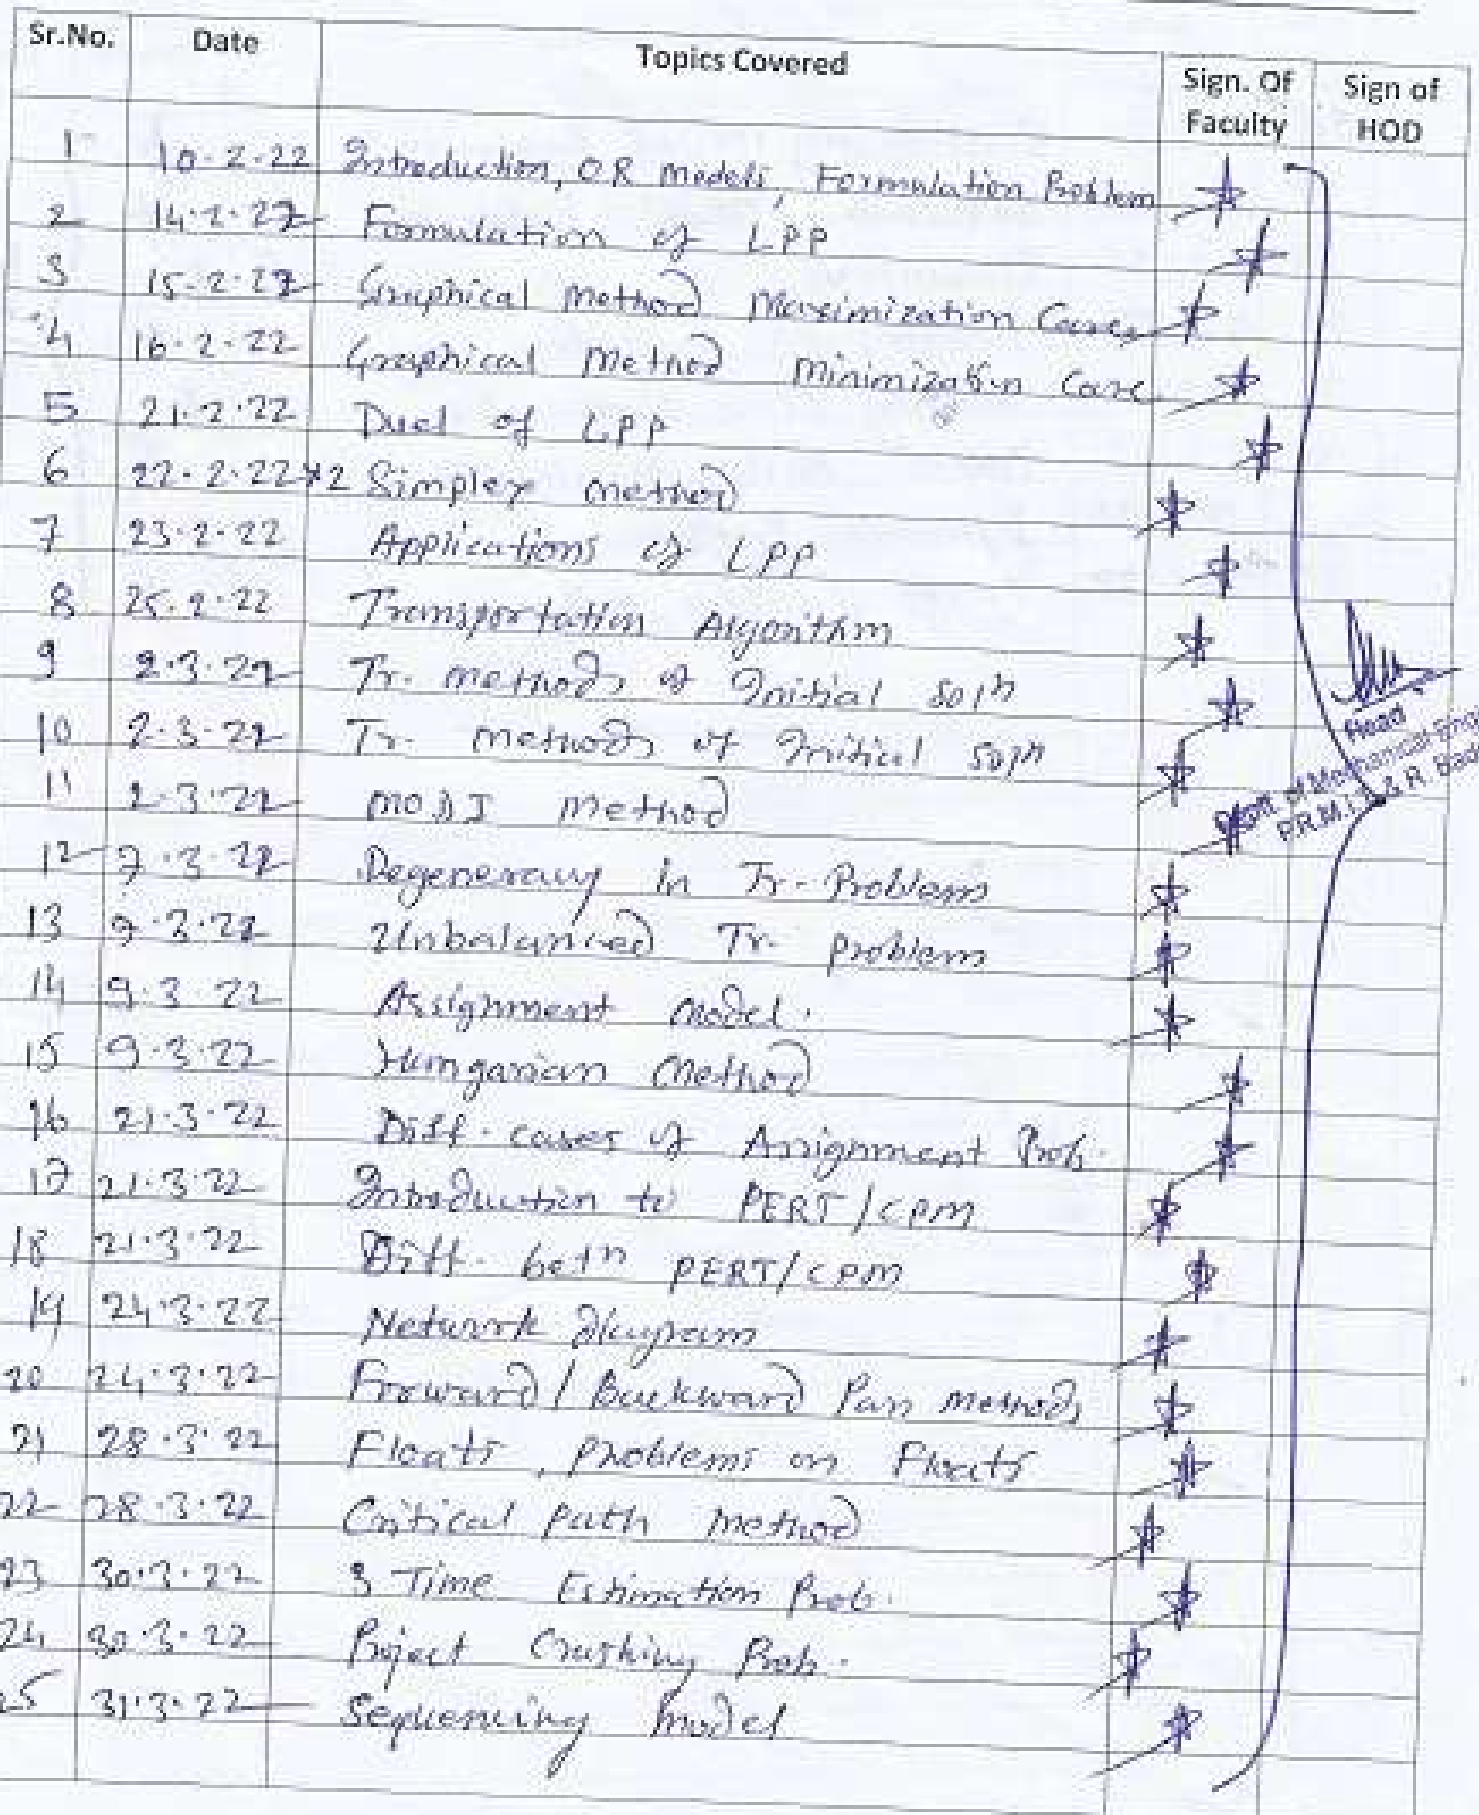 Sr.No. Date Topics Covered Sign. Of Faculty Sign of HOD
1 10-2-22 Introduction, OR Models, Formulation Problem
2 14-2-22 Formulation of LPP
3 15-2-22 Graphical Method Maximization Cases
4 16-2-22 Graphical Method Minimization Case
5 21-2-22 Dual of LPP
6 22-2-22 x2 Simplex Method
7 23-2-22 Applications of LPP
8 25-2-22 Transportation Algorithm
9 2-3-22 Tr. methods of Initial Soln
10 2-3-22 Tr. methods of Initial Soln
11 2-3-22 MODI Method
12 7-3-22 Degeneracy in Tr-Problems
13 7-3-22 Unbalanced Tr. Problem
14 9-3-22 Assignment Model.
15 9-3-22 Hungarian Method
16 21-3-22 Diff. cases of Assignment Prob.
17 21-3-22 Introduction to PERT/CPM
18 21-3-22 Diff. betn PERT/CPM
19 24-3-22 Network diagram
20 24-3-22 Forward/Backward Pass Methods
21 28-3-22 Floats, Problems on Floats
22 28-3-22 Critical Path Method
23 30-3-22 3 Time Estimation Prob.
24 30-3-22 Project Crashing Prob.
25 31-3-22 Sequencing Model
Head
of Mechanical Engg
P.R.M.I.T. & R. Bad